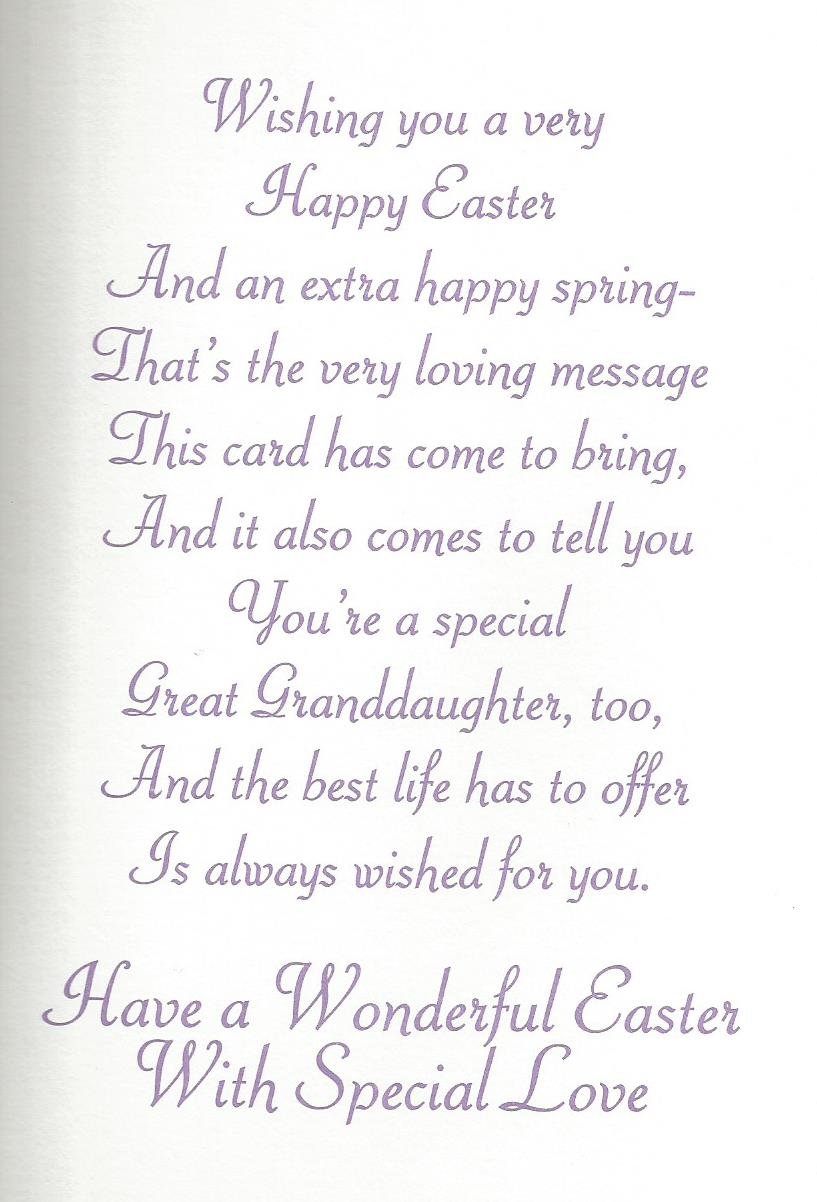 Wishing you a very
Happy Easter
And an extra happy spring-
That's the very loving message
This card has come to bring,
And it also comes to tell you
You're a special
Great Granddaughter, too,
And the best life has to offer
Is always wished for you.
Have a Wonderful Easter
With Special Love